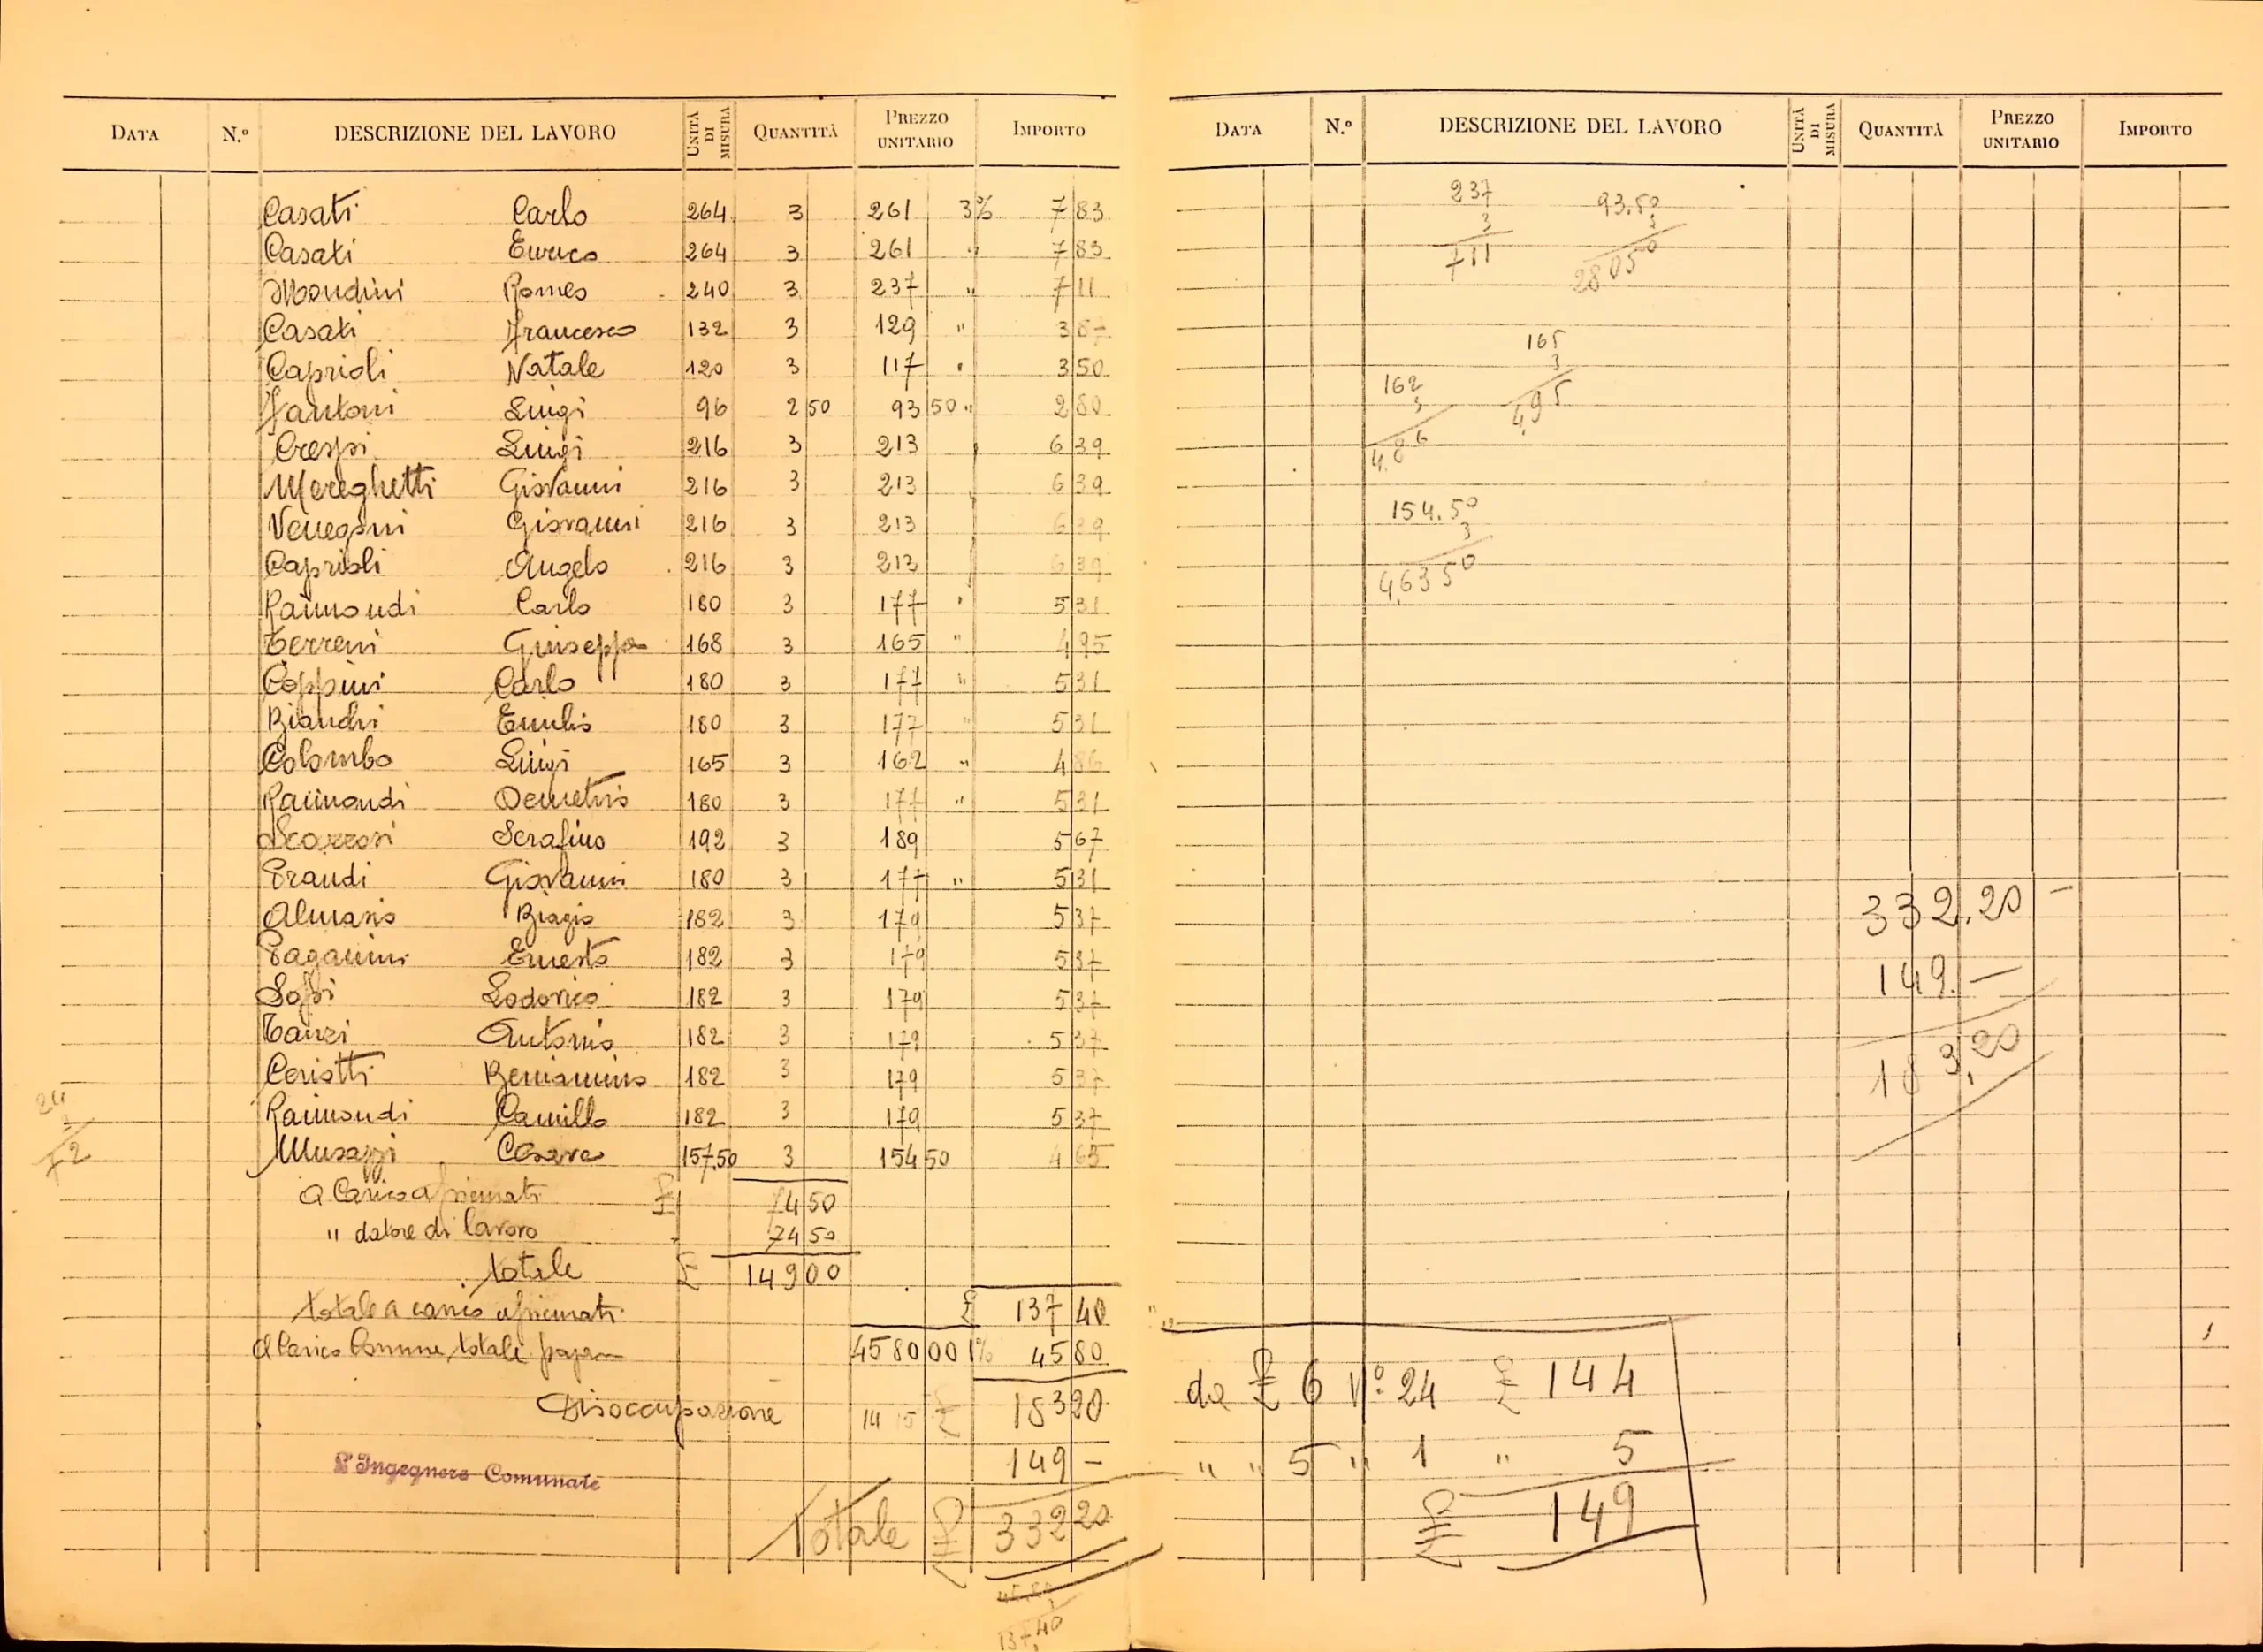 DATA N.º DESCRIZIONE DEL LAVORO UNITÀ DI MISURA QUANTITÀ PREZZO UNITARIO IMPORTO
Casati Carlo 264 3 261 3% 7 83
Casati Enrico 264 3 261 " 7 83
Mondini Romeo 240 3 237 " 7 11
Casati Francesco 132 3 129 " 3 87
Caprioli Natale 120 3 117 " 3 50
Fantoni Luigi 96 2 50 93 50 " 2 80
Crespi Luigi 216 3 213 6 39
Mereghetti Giovanni 216 3 213 6 39
Venegoni Giovanni 216 3 213 6 39
Caprioli Angelo 216 3 213 6 39
Raimondi Carlo 180 3 177 " 5 31
Terreni Giuseppe 168 3 165 " 4 95
Coppini Carlo 180 3 177 " 5 31
Biandri Emilio 180 3 177 " 5 31
Colombo Luigi 165 3 162 " 4 86
Raimondi Demetrio 180 3 177 " 5 31
Scazzosi Serafino 192 3 189 5 67
Grandi Giovanni 180 3 177 " 5 31
Almasio Biagio 182 3 179 5 37
Paganini Ernesto 182 3 179 5 37
Lodovico 182 3 179 5 37
Tanzi Antonio 182 3 179 5 37
Ceriotti Beniamino 182 3 179 5 37
Raimondi Camillo 182 3 179 5 37
Musazzi Cesare 157,50 3 154 50 4 63
24
3
72
A Carico assicurati £ 74 50
" datore di lavoro " 74 50
Totale £ 149 00
Totale a carico assicurati £ 137 40
A Carico Comune, totale 4580 00 1% 45 80
Disoccupazione £ 183 20
149 –
L'Ingegnere Comunale
Totale £ 332 20
45,80
3
137,40
DATA N.º DESCRIZIONE DEL LAVORO UNITÀ DI MISURA QUANTITÀ PREZZO UNITARIO IMPORTO
237 93.50
3 3
711 280 50
165
3
4,95
162
3
4.86
154.50
3
4,63 50
332,20 –
149. –
183,20
da £ 6 Nº 24 £ 144
" " 5 " 1 " 5
£ 149